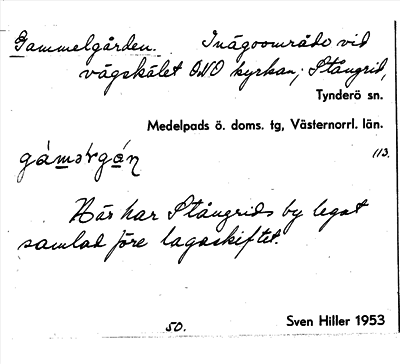 Gammelgården. Inägoområde vid
vägskälet ONO kyrkan; Stångrid,
Tynderö sn.
Medelpads ö. doms. tg, Västernorrl. län.
113.
Här har Stångrids by legat
samlad före lagaskiftet.
50.
Sven Hiller 1953